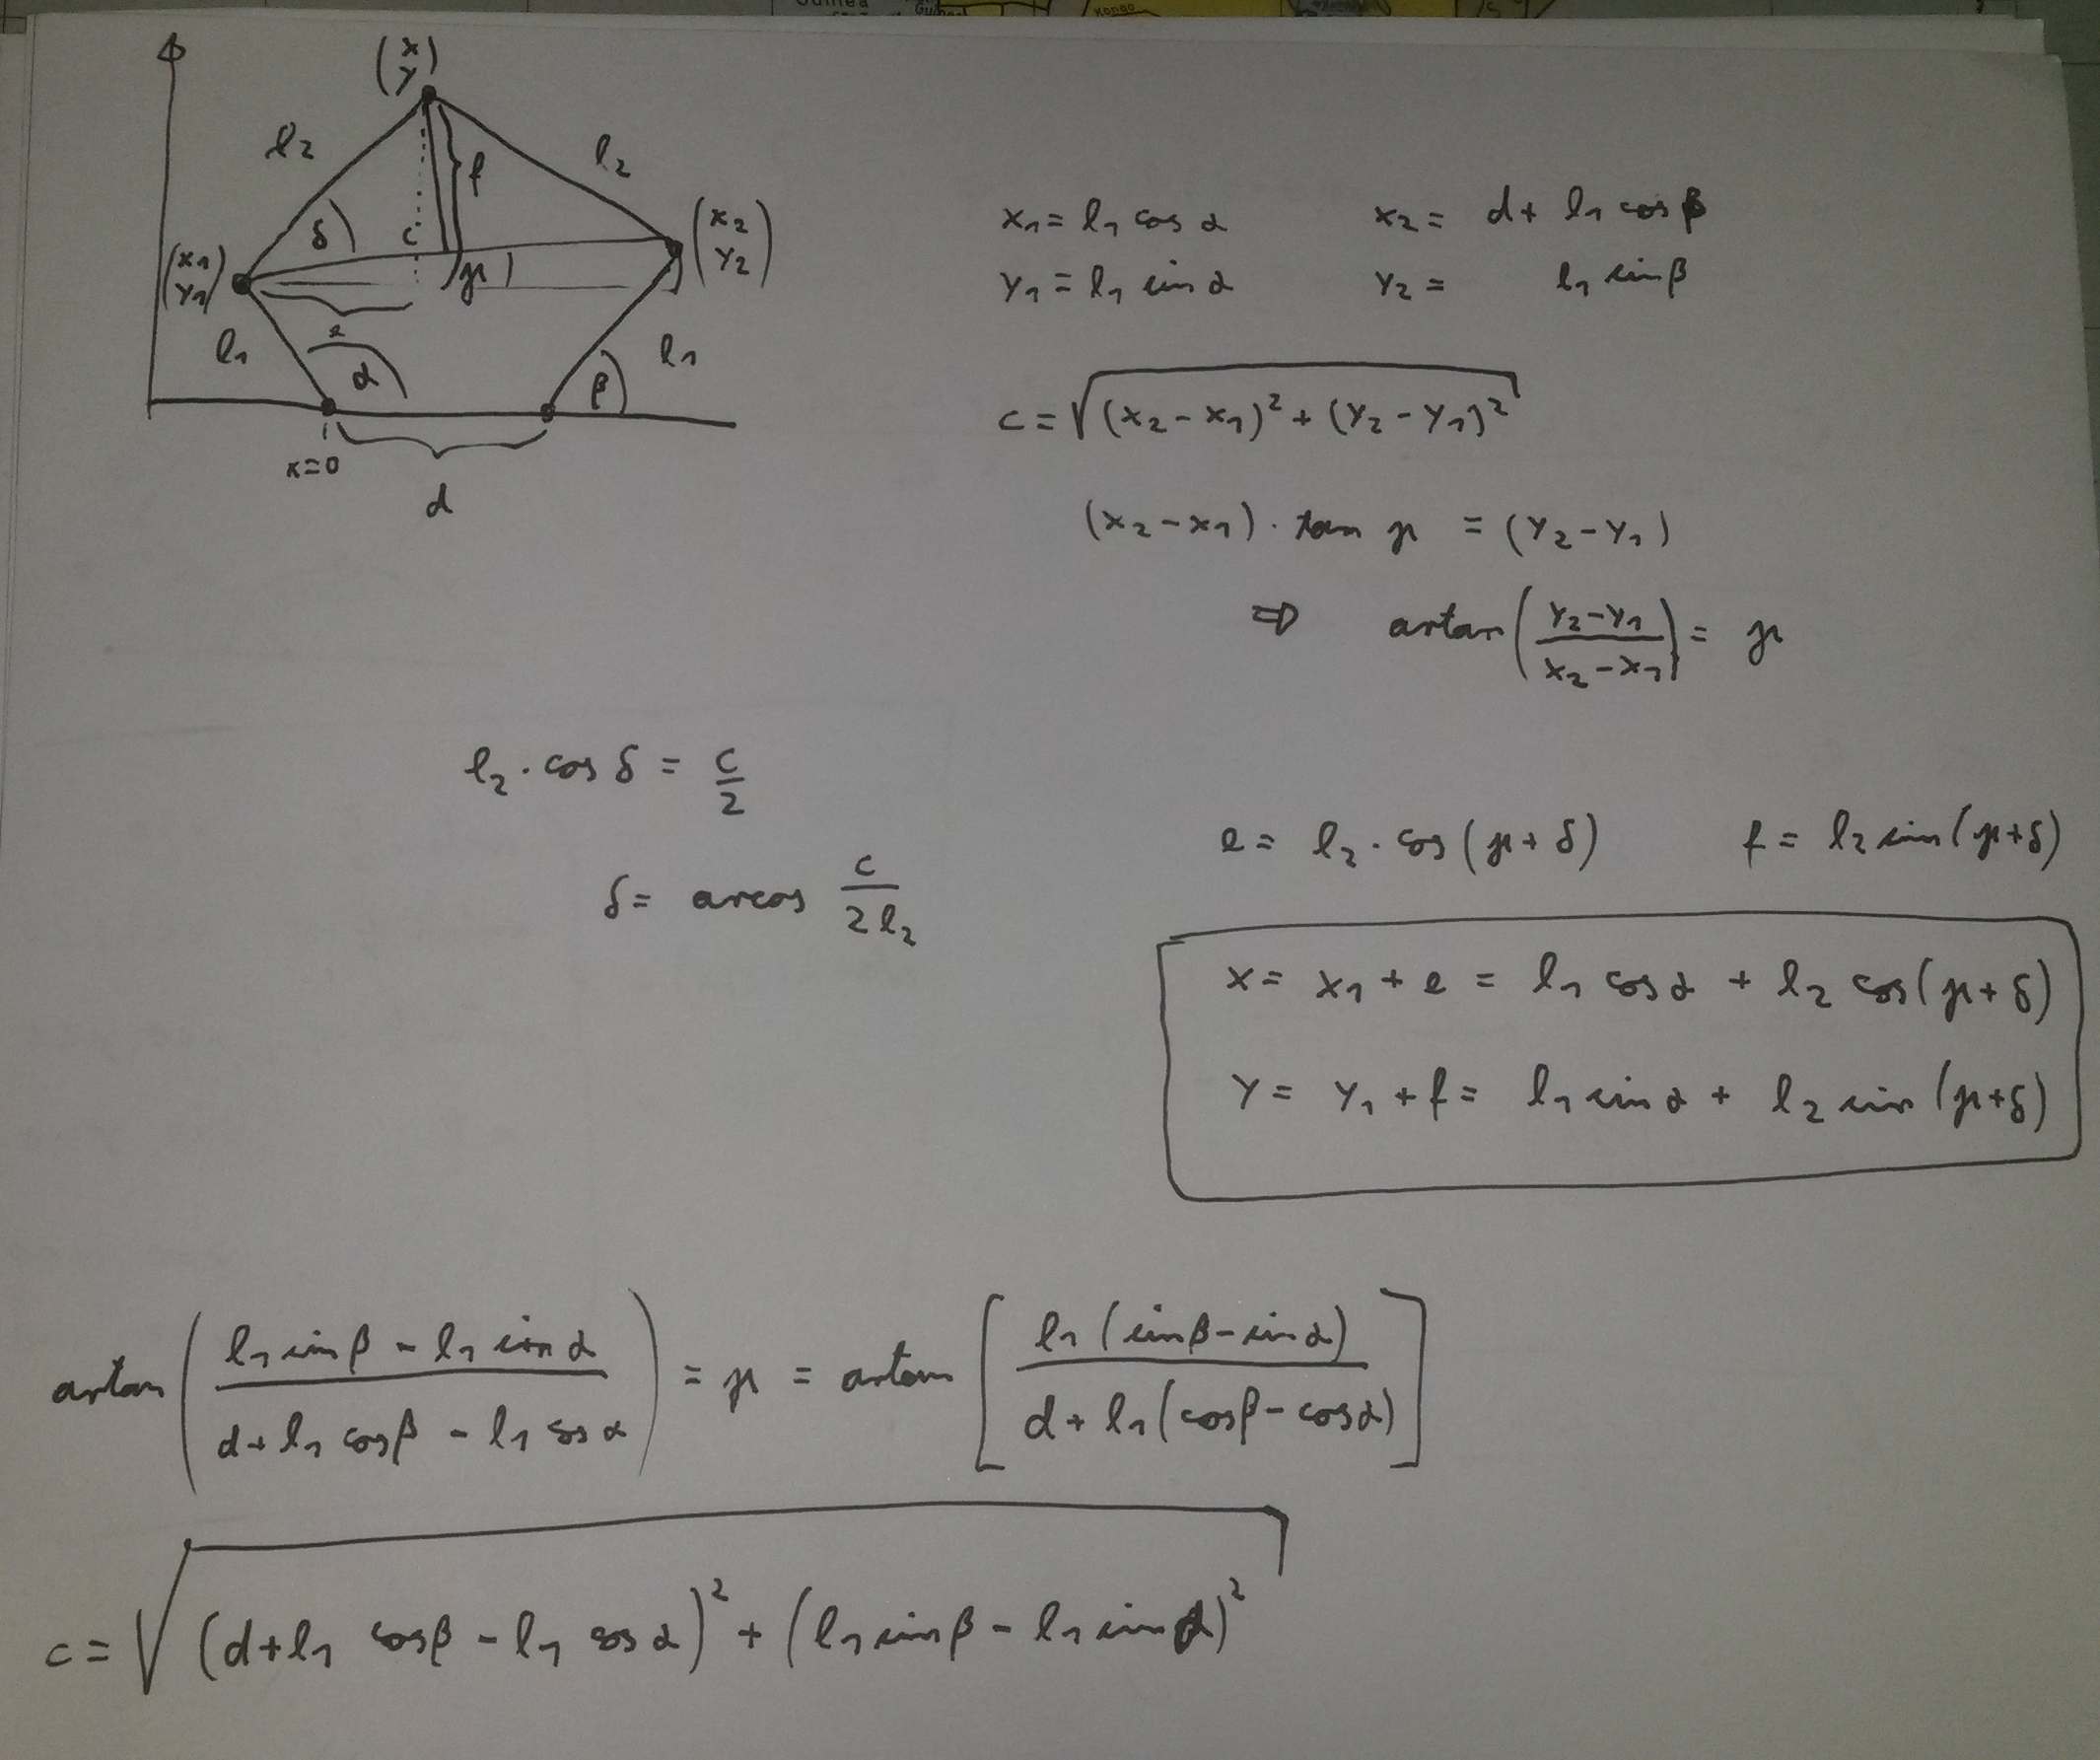 Guinea
Kongo
(x y)
l₂ l₂
f
δ c
(x₁ y₁) μ (x₂ y₂)
e
l₁ α β l₁
x=0
d
x₁ = l₁ cos α x₂ = d + l₁ cos β
y₁ = l₁ sin α y₂ = l₁ sin β
c = √((x₂ - x₁)² + (y₂ - y₁)²)
(x₂ - x₁) · tan μ = (y₂ - y₁)
⇒ artan((y₂ - y₁)/(x₂ - x₁)) = μ
l₂ · cos δ = c/2
e = l₂ · cos(μ + δ) f = l₂ sin(μ + δ)
δ = arcos c/(2 l₂)
x = x₁ + e = l₁ cos α + l₂ cos(μ + δ)
y = y₁ + f = l₁ sin α + l₂ sin(μ + δ)
artan((l₁ sin β - l₁ sin α)/(d + l₁ cos β - l₁ cos α)) = μ = artan[(l₁(sin β - sin α))/(d + l₁(cos β - cos α))]
c = √((d + l₁ cos β - l₁ cos α)² + (l₁ sin β - l₁ sin α)²)